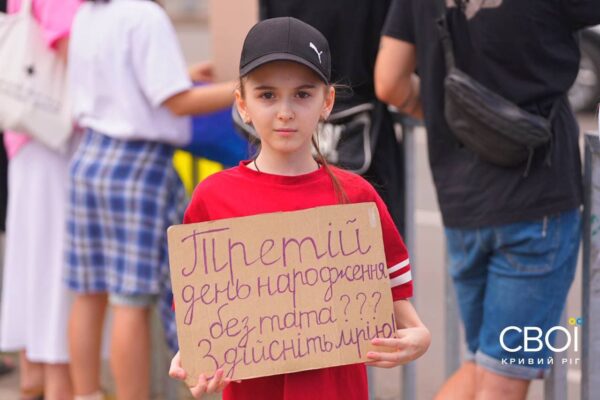 Третій
день народження
без тата???
Здійсніть мрію
СВОЇ
КРИВИЙ РІГ